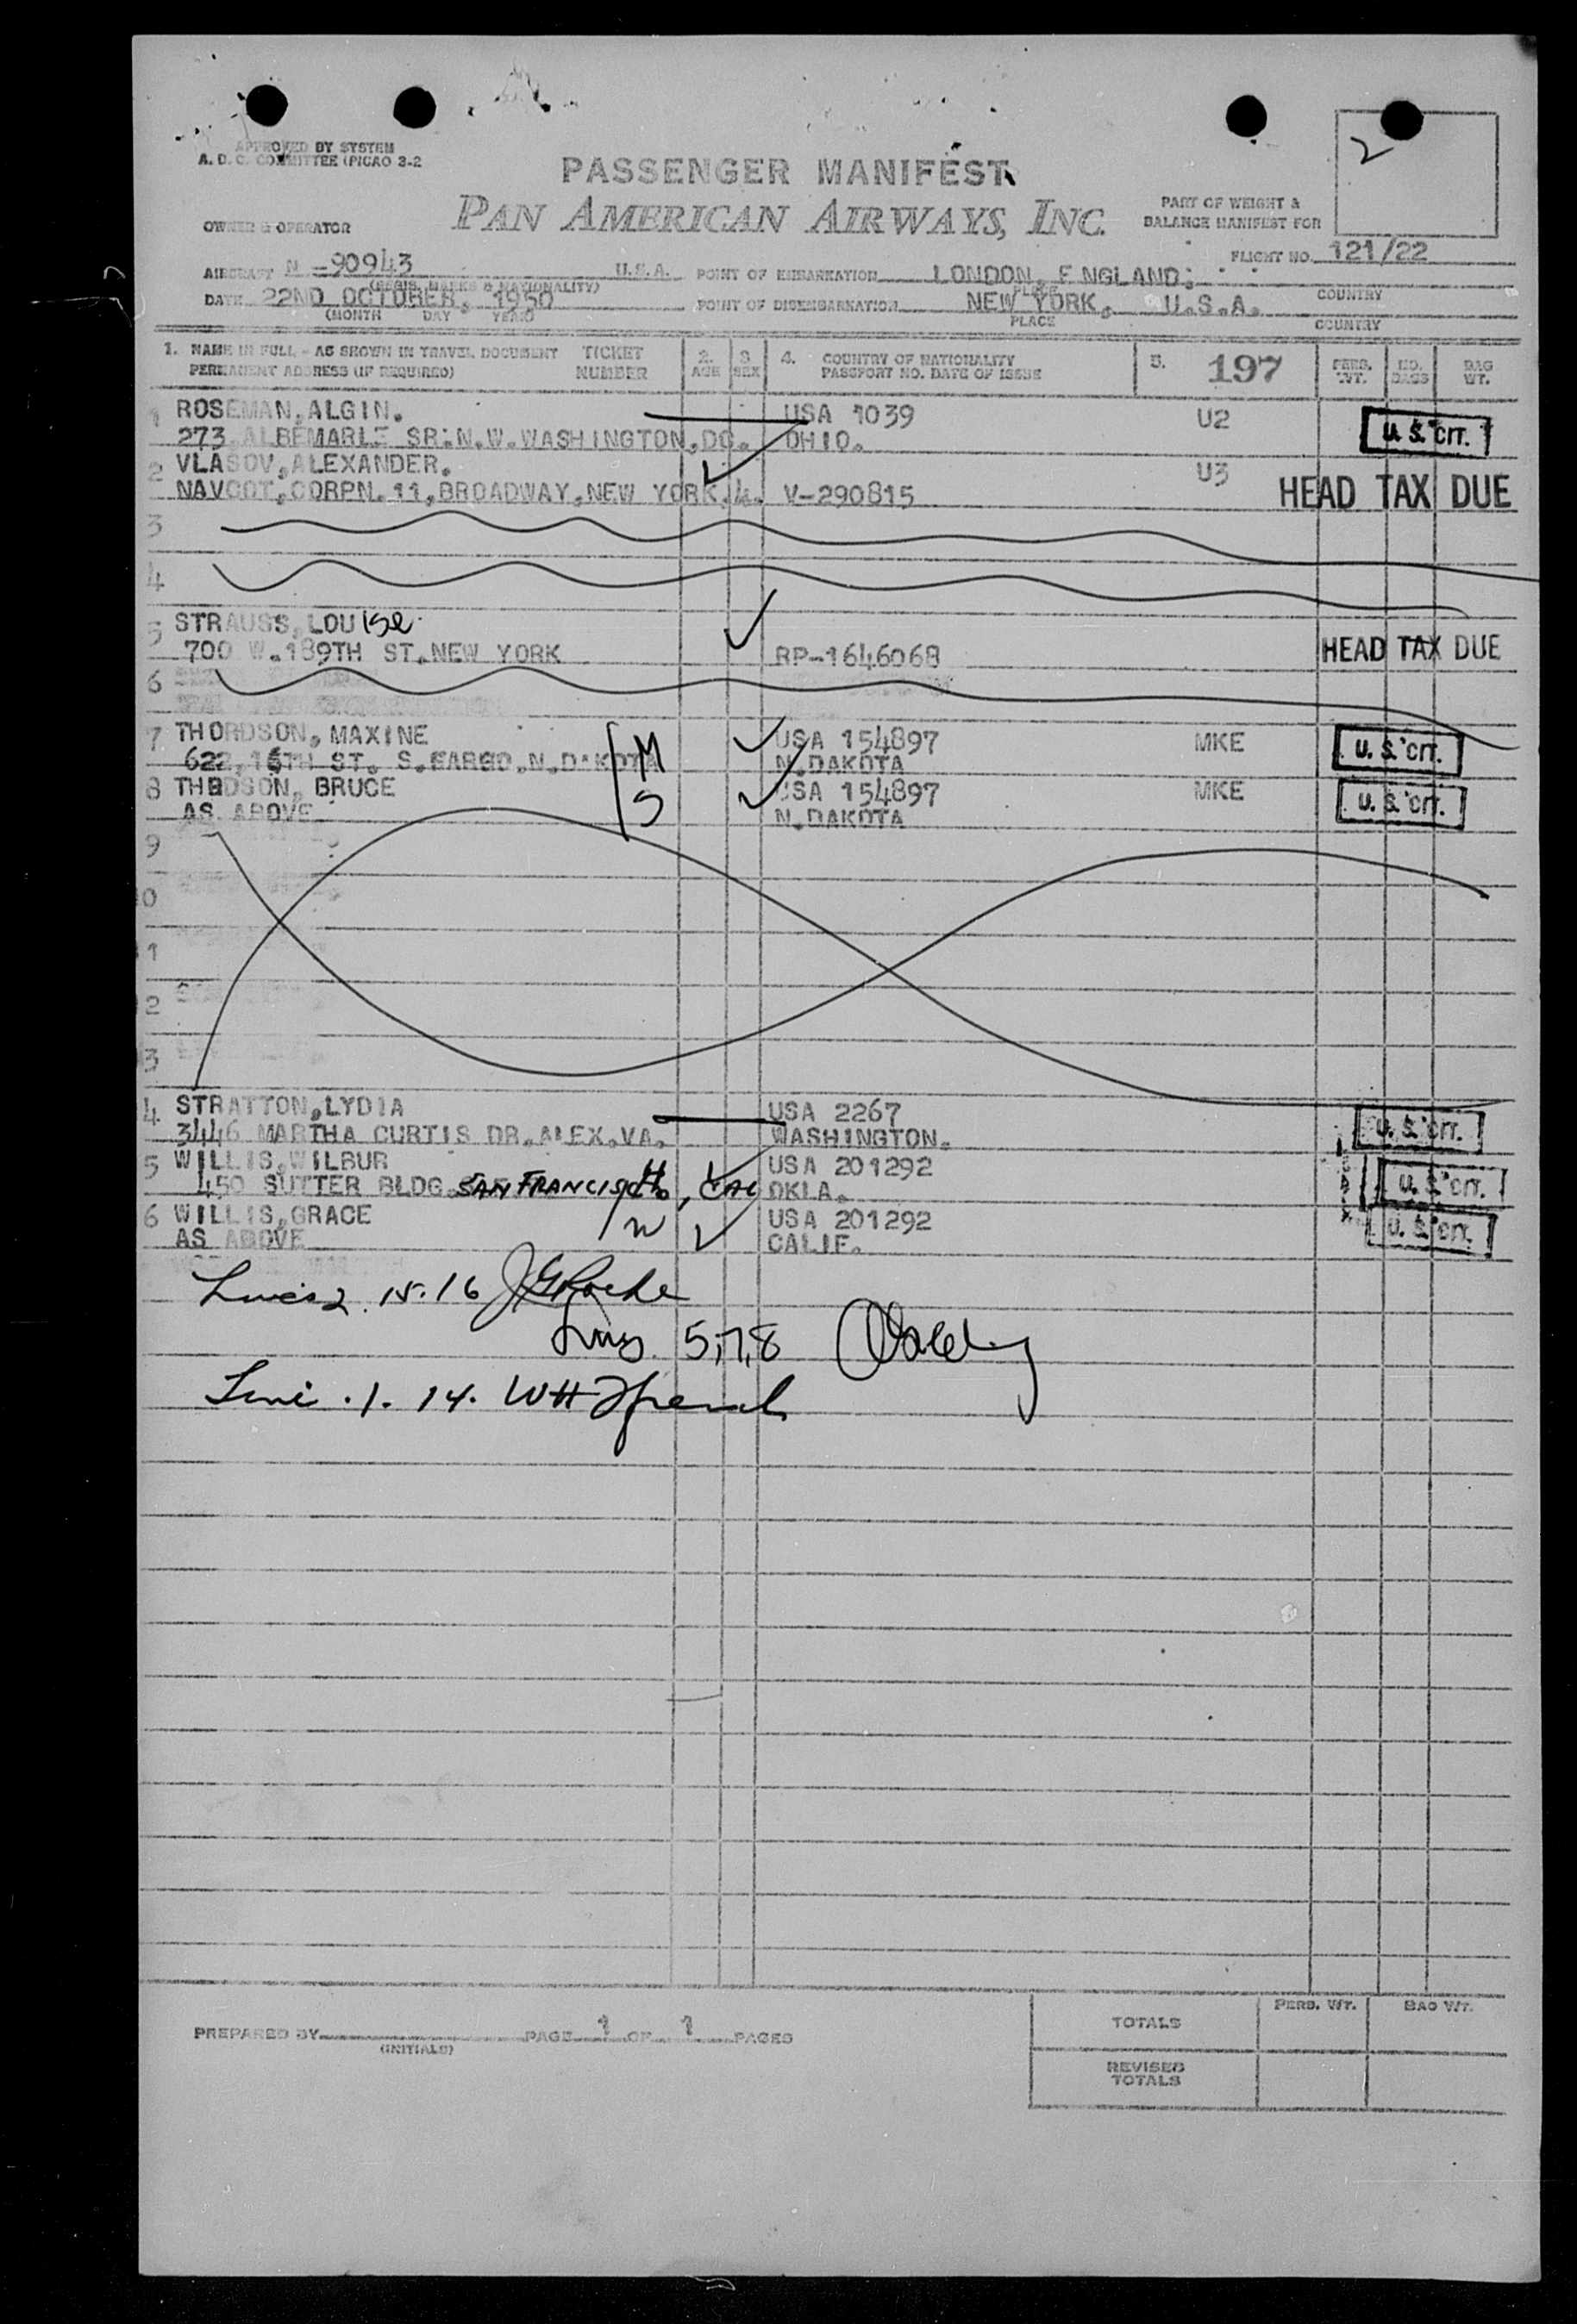 APPROVED BY SYSTEM
A. D. C. COMMITTEE (PICAO 3-2
2
PASSENGER MANIFEST
PAN AMERICAN AIRWAYS, INC.
PART OF WEIGHT &
BALANCE MANIFEST FOR
OWNER & OPERATOR
FLIGHT NO. 121/22
AIRCRAFT N-90943 U.S.A. POINT OF EMBARKATION LONDON, ENGLAND:
(REGIS. MARKS & NATIONALITY) PLACE COUNTRY
DATE 22ND OCTOBER, 1950 POINT OF DISEMBARKATION NEW YORK, U.S.A.
(MONTH DAY YEAR) PLACE COUNTRY
1. NAME IN FULL - AS SHOWN IN TRAVEL DOCUMENT TICKET 2. 3. 4. COUNTRY OF NATIONALITY 5. 197 PERS. NO. BAG
PERMANENT ADDRESS (IF REQUIRED) NUMBER AGE SEX PASSPORT NO. DATE OF ISSUE WT. BAGS WT.
1 ROSEMAN, ALGIN. USA 1039 U2 U.S. CIT.
273 ALBEMARLE SR.N.W.WASHINGTON,DC. OHIO.
2 VLASOV, ALEXANDER. U3
NAVCOT,CORPN.11,BROADWAY,NEW YORK.4. V-290815 HEAD TAX DUE
3
4
5 STRAUSS, LOUISE.
700 W.189TH ST.NEW YORK RP-1646068 HEAD TAX DUE
6
7 THORDSON, MAXINE M USA 154897 MKE U.S. CIT.
622, 15TH ST. S.FARGO.N.DAKOTA N.DAKOTA
8 THRDSON, BRUCE S USA 154897 MKE U.S. CIT.
AS ABOVE N.DAKOTA
9
0
1
2
3
4 STRATTON, LYDIA USA 2267 U.S. CIT.
3446 MARTHA CURTIS DR.ALEX.VA. WASHINGTON.
5 WILLIS, WILBUR H USA 201292 U.S. CIT.
450 SUTTER BLDG. SAN FRANCISCO, CAL OKLA.
6 WILLIS, GRACE W USA 201292 U.S. CIT.
AS ABOVE CALIF.
Lines 2. 15. 16
Lines 5,7,8
Line .1. 14. WH
PREPARED BY PAGE 1 OF 1 PAGES
(INITIALS)
PERS. WT. BAG WT.
TOTALS
REVISED
TOTALS